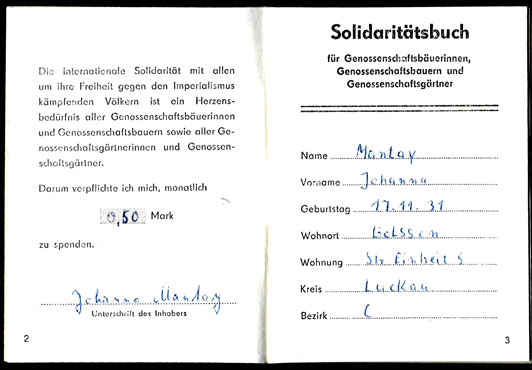 Die internationale Solidarität mit allen
um ihre Freiheit gegen den Imperialismus
kämpfenden Völkern ist ein Herzens-
bedürfnis aller Genossenschaftsbäuerinnen
und Genossenschaftsbauern sowie aller Ge-
nossenschaftsgärtnerinnen und Genossen-
schaftsgärtner.
Darum verpflichte ich mich, monatlich
0,50 Mark
zu spenden.
Johanna Mantay
Unterschrift des Inhabers
2
Solidaritätsbuch
für Genossenschaftsbäuerinnen,
Genossenschaftsbauern und
Genossenschaftsgärtner
Name Mantay
Vorname Johanna
Geburtstag 17.11.31
Wohnort
Wohnung Str Einheit 5
Kreis Luckau
Bezirk C
3